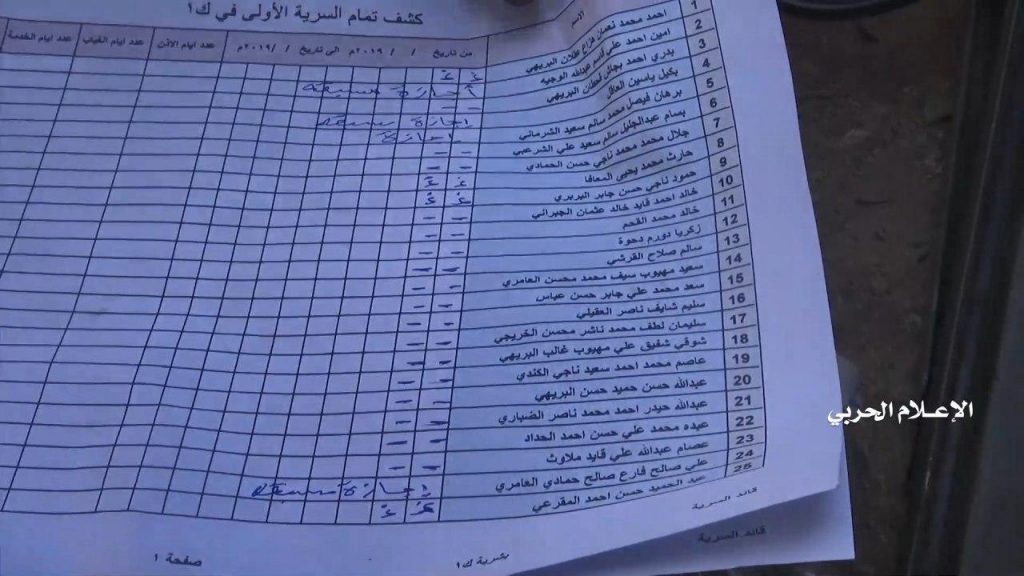 كشف تمام السرية الأولى في ك١
الاسم من تاريخ / / ٢٠١٩م الى تاريخ / / ٢٠١٩م عدد ايام الاذن عدد ايام الغياب عدد ايام الخدمة
1 احمد محمد نعمان فزاع عقلان البريهي غ غ
2 امين احمد علي قاسم عبدالله الوجيه
3 بدري احمد بجاش البريهي
4 بكيل ياسين العاقل
5 برهان فيصل محمد سالم سعيد الشرماني
6 بسام عبدالجليل سالم سعيد علي الشرعبي
7 جلال محمد محمد ناجي حسن الحمادي
8 حارث محمد يحيى المعافا غ غ
9 حمود ناجي حسن جابر البربري غ غ
10 خالد احمد قايد خالد عثمان الجبراني
11 خالد محمد الفحم
12 زكريا دورم دحوة
13 سالم صلاح القرشي
14 سعيد مهيوب سيف محمد محسن العامري
15 سعد محمد علي جابر حسن عباس
16 سليم شايف ناصر العقيلي
17 سليمان لطف محمد ناشر محسن الخريجي
18 شوقي شفيق علي مهيوب غالب البريهي
19 عاصم محمد احمد سعيد ناجي الكندي
20 عبدالله حسن حميد حسن البريهي
21 عبدالله حيدر احمد محمد ناصر الضباري
22 عبده محمد علي حسن احمد الحداد
23 عصام عبدالله علي قايد ملاوث
24 علي صالح فارع صالح حمادي العامري
25 عبد الحميد حسن احمد المقرعي غ غ
قائد السرية
بشرية ك١
صفحة ١
قائد السرية
الإعلام الحربي